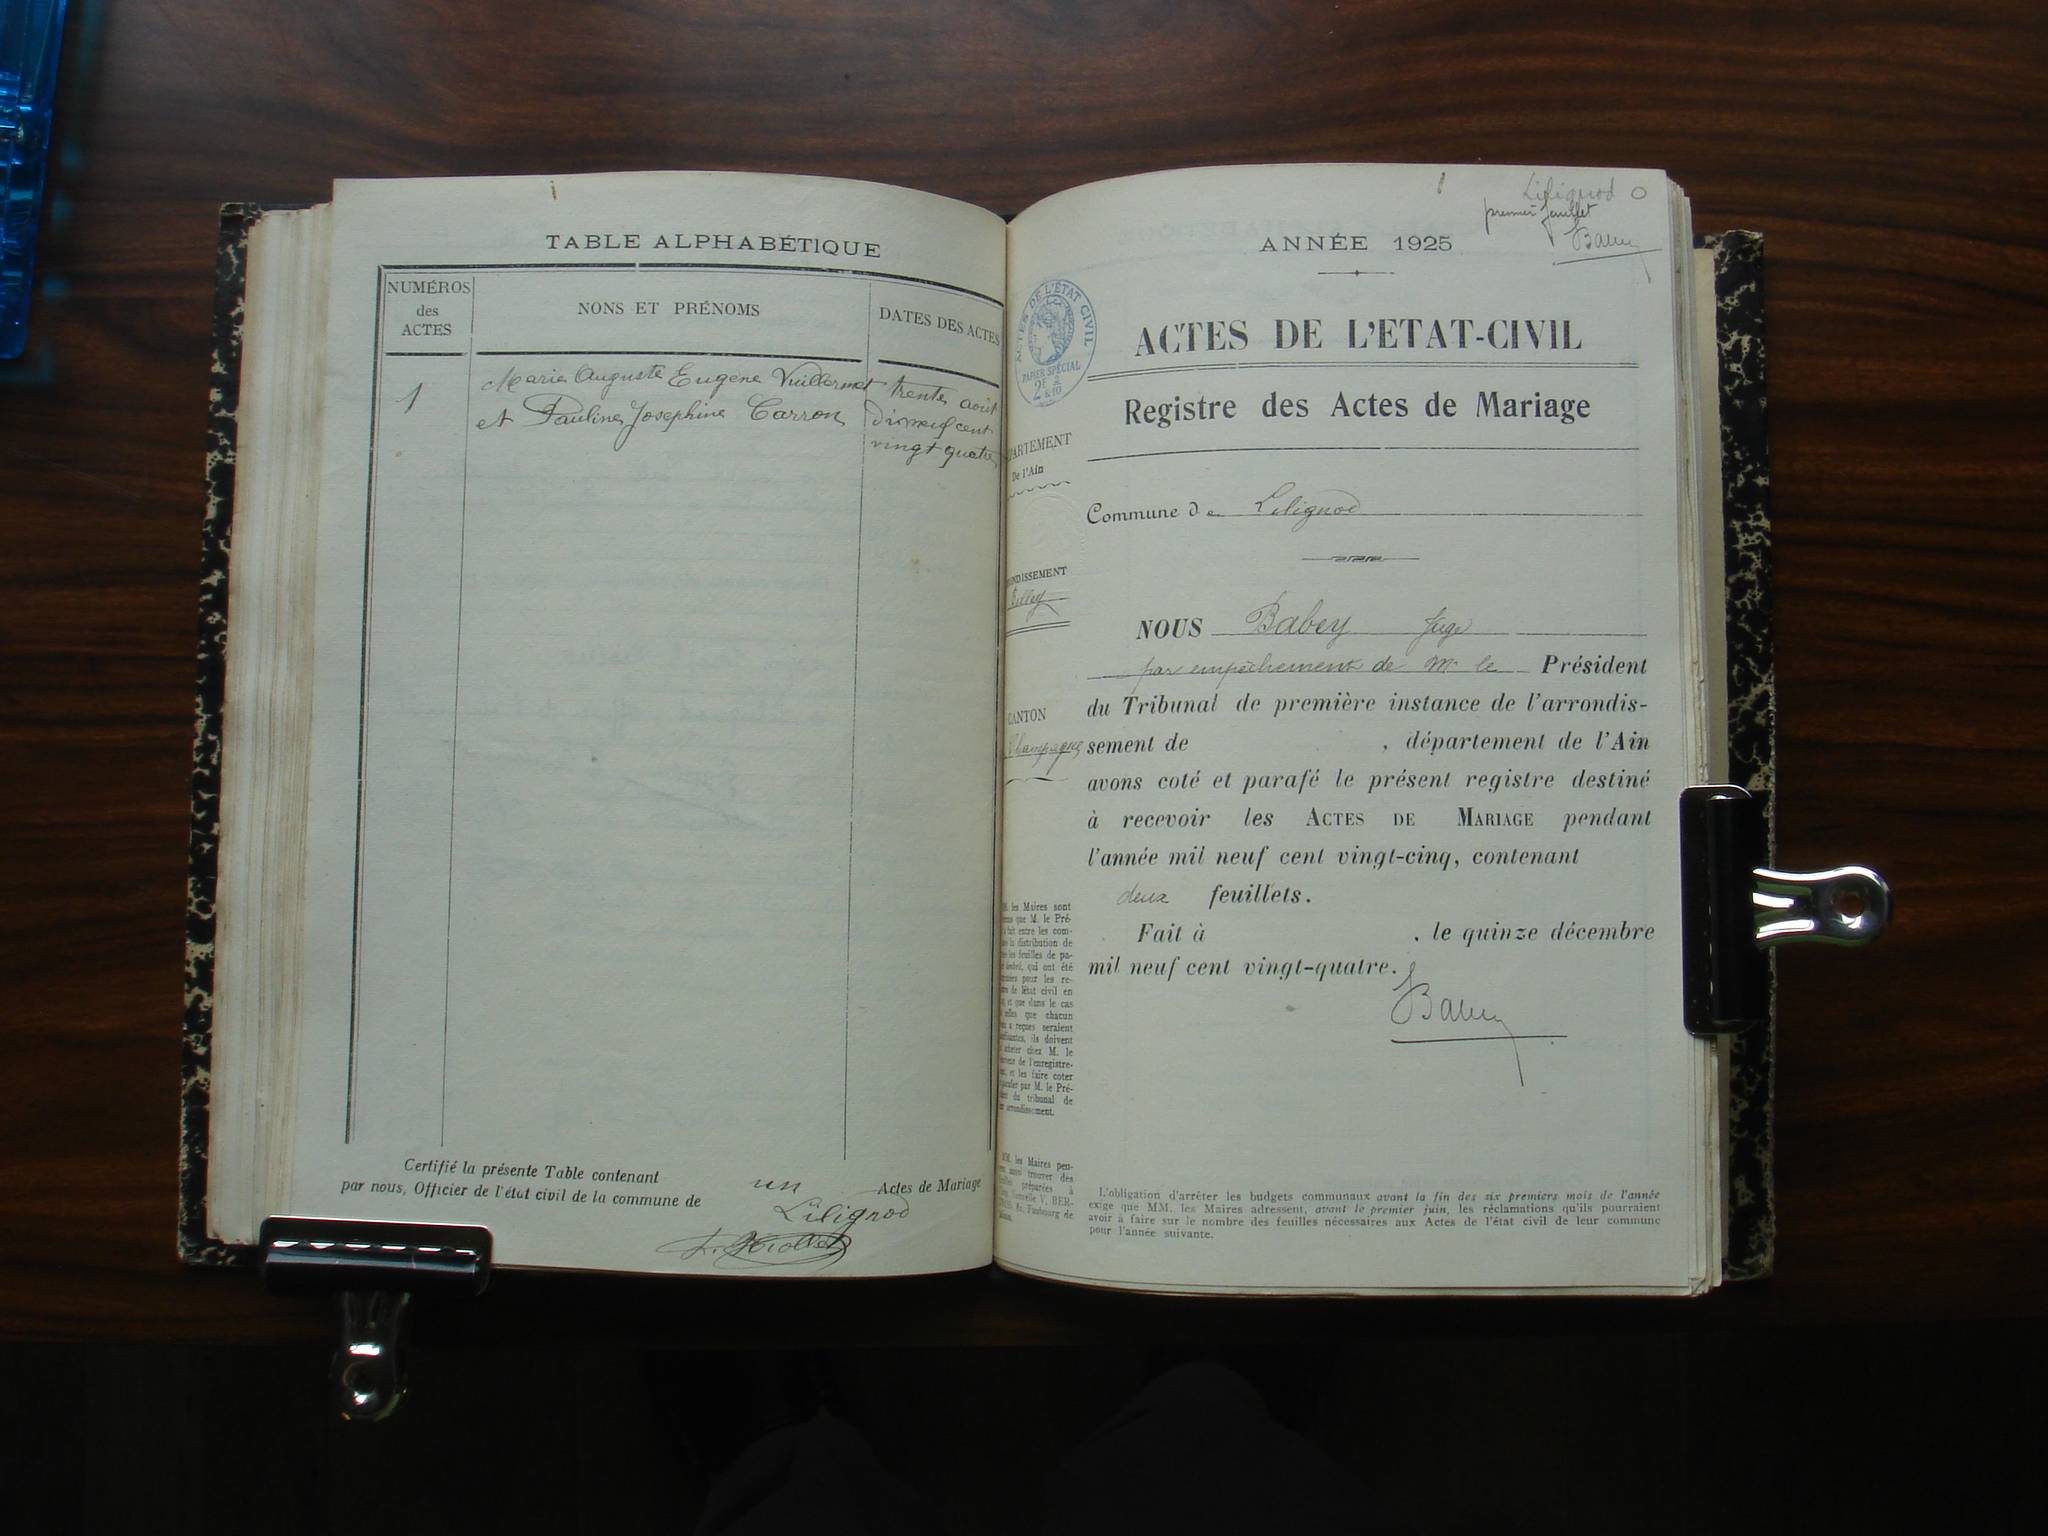 TABLE ALPHABÉTIQUE
NUMÉROS
des
ACTES
NONS ET PRÉNOMS
DATES DES ACTES
1
Marie Auguste Eugène Vuillermet
et Pauline Josephine Carron
trente août
vingt quatre
Certifié la présente Table contenant un Actes de Mariage
par nous, Officier de l'état civil de la commune de Lilignod
Lilignod
premier feuillet
ANNÉE 1925
ACTES DE L'ÉTAT CIVIL
PAPIER SPÉCIAL
ACTES DE L'ETAT-CIVIL
Registre des Actes de Mariage
De l'Ain
Commune de Lilignod
Belley
NOUS Babey Juge
par empêchement de Mr le Président
du Tribunal de première instance de l'arrondis-
Champagne
sement de , département de l'Ain
avons coté et parafé le présent registre destiné
à recevoir les ACTES DE MARIAGE pendant
l'année mil neuf cent vingt-cinq, contenant
deux feuillets.
Fait à , le quinze décembre
mil neuf cent vingt-quatre.
les Maires sont
que M. le Pré-
fait entre les com-
la distribution de
les feuilles de pa-
qui ont été
pour les re-
de l'état civil en
et que dans le cas
celles que chacun
a reçues seraient
ils doivent
acheter chez M. le
de l'enregistre-
et les faire coter
par M. le Pré-
du tribunal de
arrondissement.
MM. les Maires peu-
aussi trouver des
préparées à
L'obligation d'arrêter les budgets communaux avant la fin des six premiers mois de l'année
exige que MM. les Maires adressent, avant le premier juin, les réclamations qu'ils pourraient
avoir à faire sur le nombre des feuilles nécessaires aux Actes de l'état civil de leur commune
pour l'année suivante.